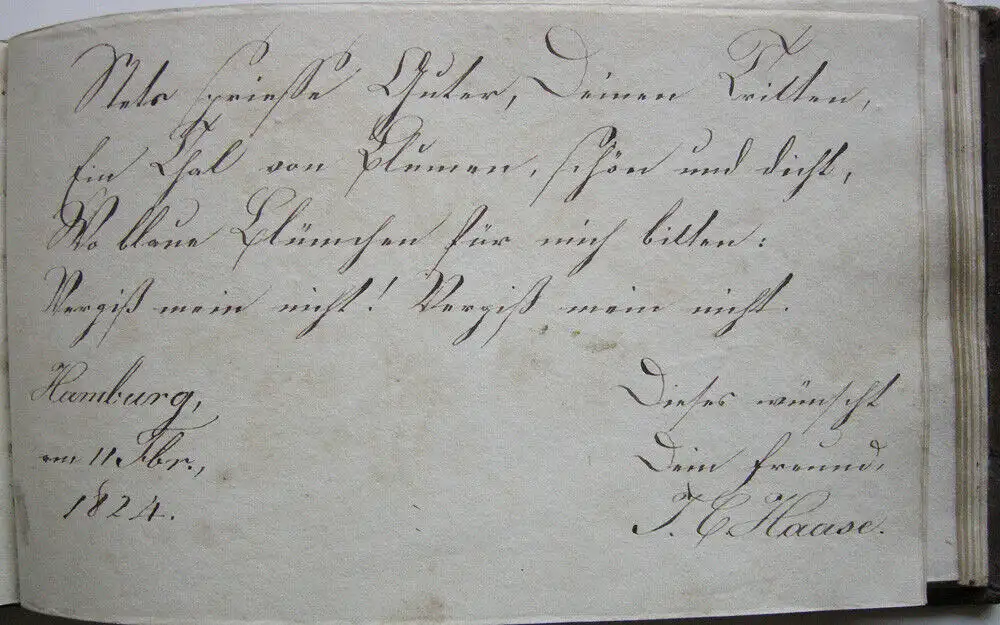 Stets spriesse Guter, Deinen Tritten,
Ein Thal von Blumen, schön und dicht,
Wo blaue Blümchen für mich bitten:
Vergiß mein nicht! Vergiß mein nicht.
Hamburg,
am 11 Fbr.,
1824.
Dieses wünscht
Dein Freund,
J. C Haase.